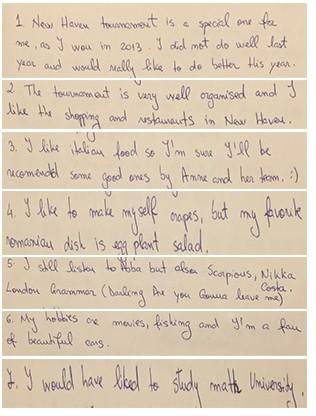 1 New Haven tournament is a special one for
me, as I won in 2013. I did not do well last
year and would really like to do better this year.
2. The tournament is very well organised and I
like the shopping and restaurants in New Haven.
3. I like italian food so I'm sure I'll be
recomended some good ones by Anne and her team. :)
4. I like to make myself crapes, but my favorite
romanian dish is egg plant salad.
5. I still listen to Abba but also Scorpions, Nikka
Costa,
London Grammar (Darling Are you Gonna leave me)
6. My hobbies are movies, fishing and I'm a fan
of beautiful cars.
7. I would have liked to study math University.